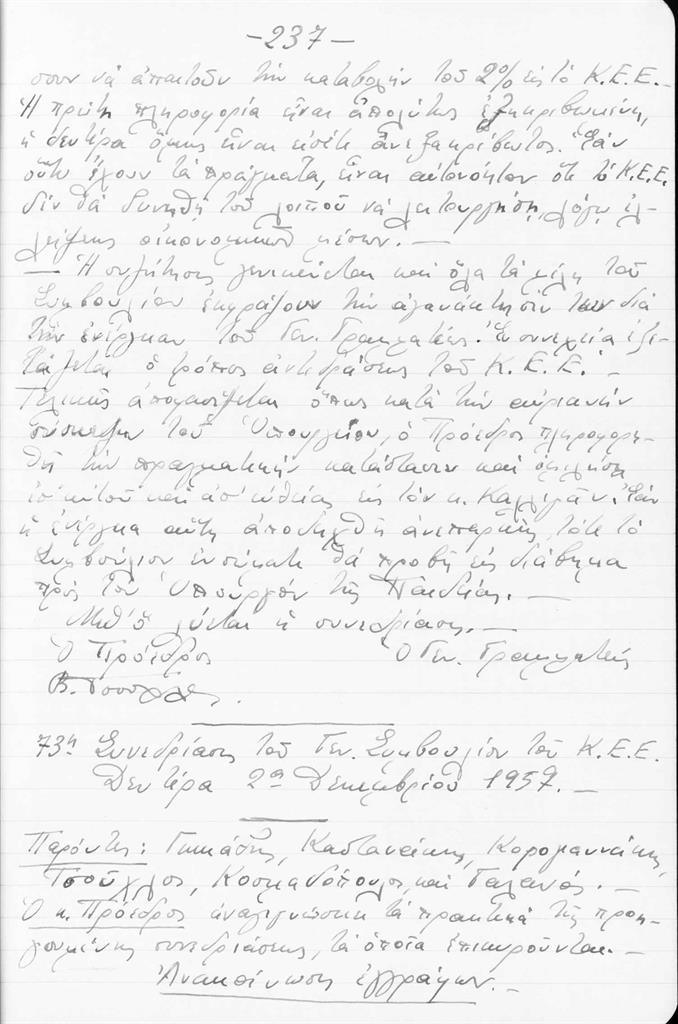 -237-
σουν νὰ ἀπαιτοῦν τὴν καταβολὴν τοῦ 2% εἰς τὸ Κ.Ε.Ε.-
Ἡ πρώτη πληροφορία εἶναι ἀπολύτως ἐξηκριβωμένη,
ἡ δευτέρα ὅμως εἶναι εἰσέτι ἀνεξακρίβωτος. Ἐὰν
οὕτω ἔχουν τὰ πράγματα, εἶναι αὐτονόητον ὅτι τὸ Κ.Ε.Ε.
δὲν θὰ δυνηθῆ τοῦ λοιποῦ νὰ λειτουργήση, λόγω ἐλ-
λείψεως οἰκονομικῶν μέσων.-
- Ἡ συζήτησις γενικεύεται καὶ ὅλα τὰ μέλη τοῦ
Συμβουλίου ἐκφράζουν τὴν ἀγανάκτησίν των διὰ
τὴν ἐνέργειαν τοῦ Γεν. Γραμματέως. Ἐν συνεχεία ἐξε-
τάζεται ὁ τρόπος ἀντιδράσεως τοῦ Κ.Ε.Ε.-
Τελικῶς ἀποφασίζεται ὅπως κατὰ τὴν αὐριανὴν
σύσκεψιν τοῦ Ὑπουργείου, ὁ Πρόεδρος πληροφορη-
θῆ τὴν πραγματικὴν κατάστασιν καὶ ὁμιλήση
ἐπ' αὐτοῦ καὶ ἀπ' εὐθείας εἰς τὸν κ. Καλλιγᾶν. Ἐὰν
ἡ ἐνέργεια αὕτη ἀποδειχθῆ ἀνεπαρκής, τότε τὸ
Συμβούλιον ἐν σώματι θὰ προβῆ εἰς διάβημα
πρὸς τὸν Ὑπουργὸν τῆς Παιδείας.-
Μεθ' ὃ λύεται ἡ συνεδρίασις.-
Ὁ Πρόεδρος Ὁ Γεν. Γραμματεὺς
73η Συνεδρίασις τοῦ Γεν. Συμβουλίου τοῦ Κ.Ε.Ε.
Δευτέρα 2α Δεκεμβρίου 1957.-
Παρόντες: Καστανάκης,
Τσοῦχλος, Κοσμαδόπουλος, καὶ Γαλανός.-
Ὁ κ. Πρόεδρος ἀναγιγνώσκει τὰ πρακτικὰ τῆς προη-
γουμένης συνεδριάσεως, τὰ ὁποῖα ἐπικυροῦνται.-
Ἀνακοίνωσις ἐγγράφων.-